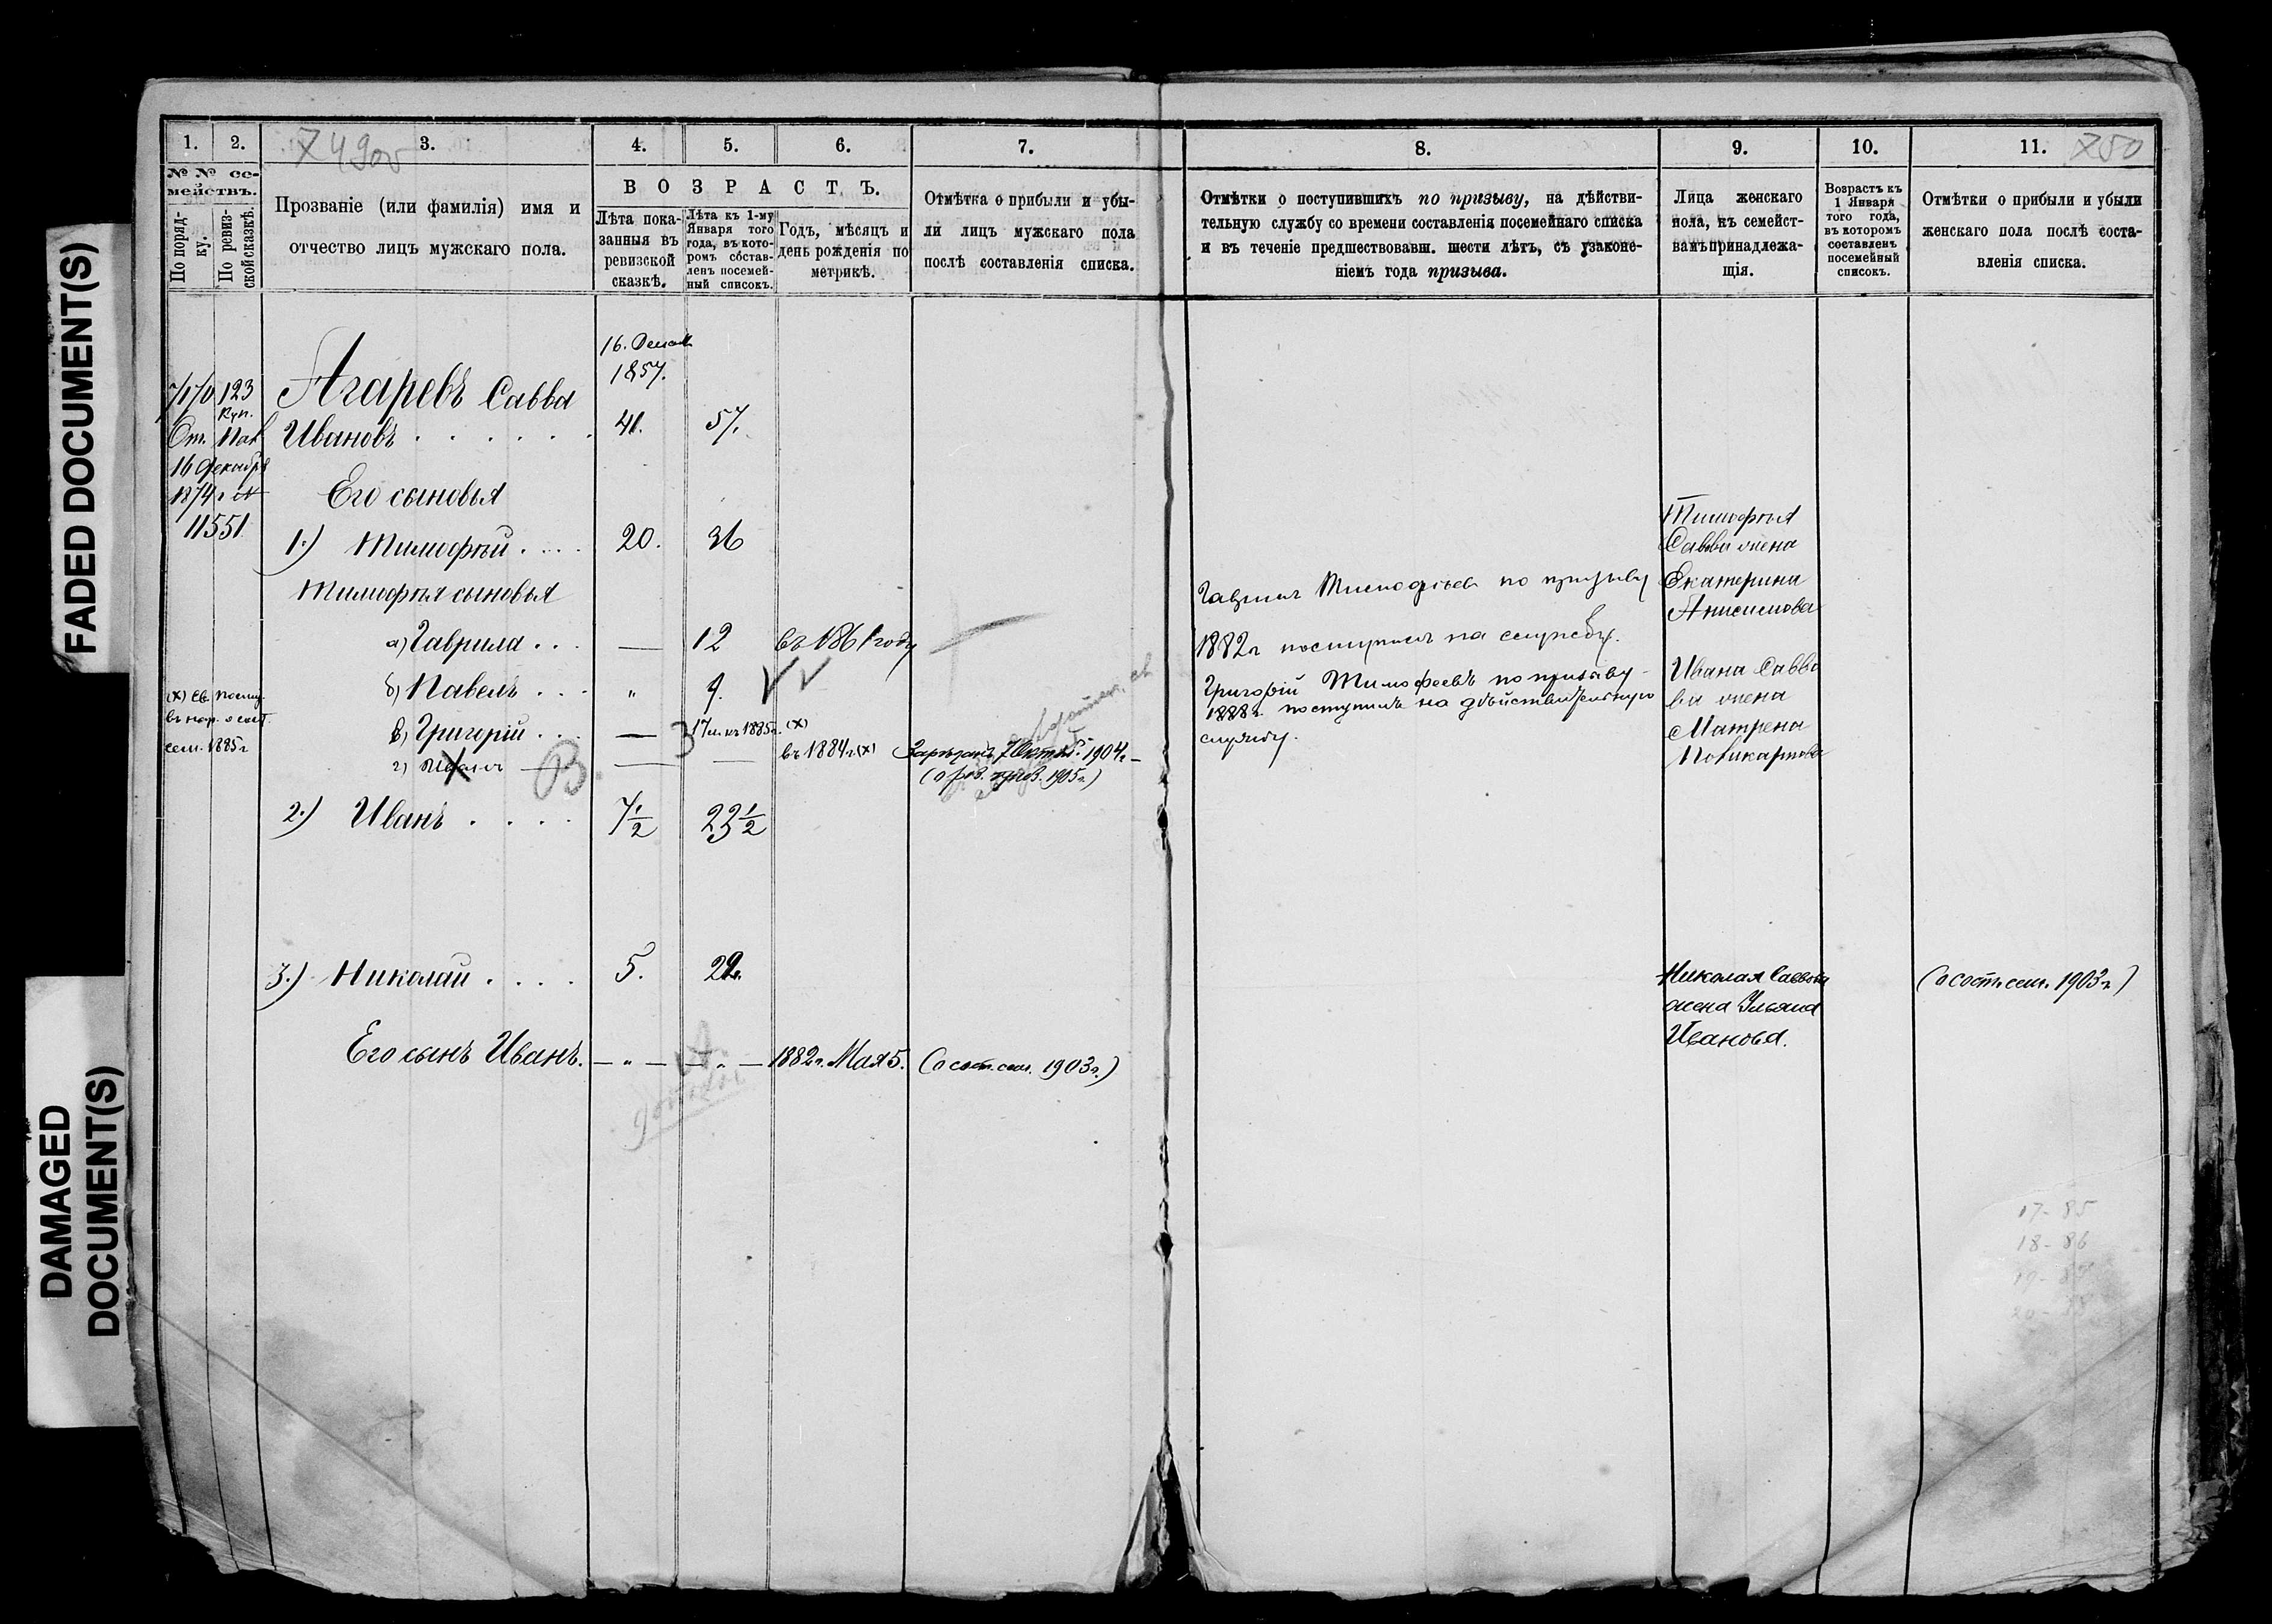 FADED DOCUMENT(S)
DAMAGED
DOCUMENT(S)
1.
2.
3.
749об
№ № се-
мействъ.
По поряд-
ку.
По ревиз-
ской сказкѣ.
Прозваніе (или фамилія) имя и
отчество лицъ мужскаго пола.
4.
5.
6.
7.
ВОЗРАСТЪ.
Лѣта пока-
занныя въ
ревизской
сказкѣ.
Лѣта къ 1-му
Января того
года, въ кото-
ромъ состав-
ленъ посемей-
ный списокъ.
Годъ, мѣсяцъ и
день рожденія по
метрикѣ.
Отмѣтка о прибыли и убы-
ли лицъ мужскаго пола
послѣ составленія списка.
8.
Отмѣтки о поступившихъ по призыву, на дѣйстви-
тельную службу со времени составленія посемейнаго списка
и въ теченіе предшествовавш. шести лѣтъ, съ узаконе-
ніемъ года призыва.
9.
Лица женскаго
пола, къ семейст-
вамъ принадлежа-
щія.
10.
Возрастъ къ
1 Января
того года,
въ которомъ
составленъ
посемейный
списокъ.
11.
750
Отмѣтки о прибыли и убыли
женскаго пола послѣ соста-
вленія списка.
123
16 декабря
1874 г №
11551
Агаревъ Савва
Ивановъ
16.
1857.
41.
57.
Его сыновья
1.) Тимофѣй
20.
36
Тимофѣя сыновья
а) Гаврила
—
12
въ 1861 году
б) Павелъ
"
9.
в) Григорій
—
3
17 л. къ 1885 г. (х)
г)
—
—
въ 1884 г. (х)
Зарѣзанъ 7 Октяб. 1904 г.
1905 г.)
(х)
сем. 1885 г
2.) Иванъ
7 1/2
23 1/2
3.) Николай
5.
Его сынъ Иванъ.
— " —
— " —
1882 г. Мая 5.
(о сост. сем. 1903 г.)
Гаврилъ Тимофѣевъ по призыву
1882 г поступилъ на службу.
Григорій Тимофеевъ по призыву
1888 г. поступилъ на дѣйствительную
службу.
Тимофѣя
Саввы жена
Екатерина
Анисимова
Ивана Савво
ва жена
Матрена
Поликарпова
Николая Саввова
жена Ульяна
Иванова.
(о сост. сем. 1903 г.)
17-85
18-86
19-87
20-88